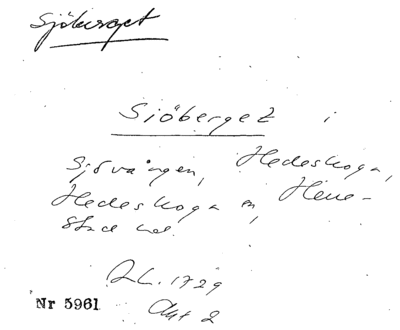 Sjöberget
Sjöberget i
Sjövången, Hedeskoga,
Hedeskoga sn, Herre-
stads hd.
L.L. 1729
Nr 5961 Akt 2